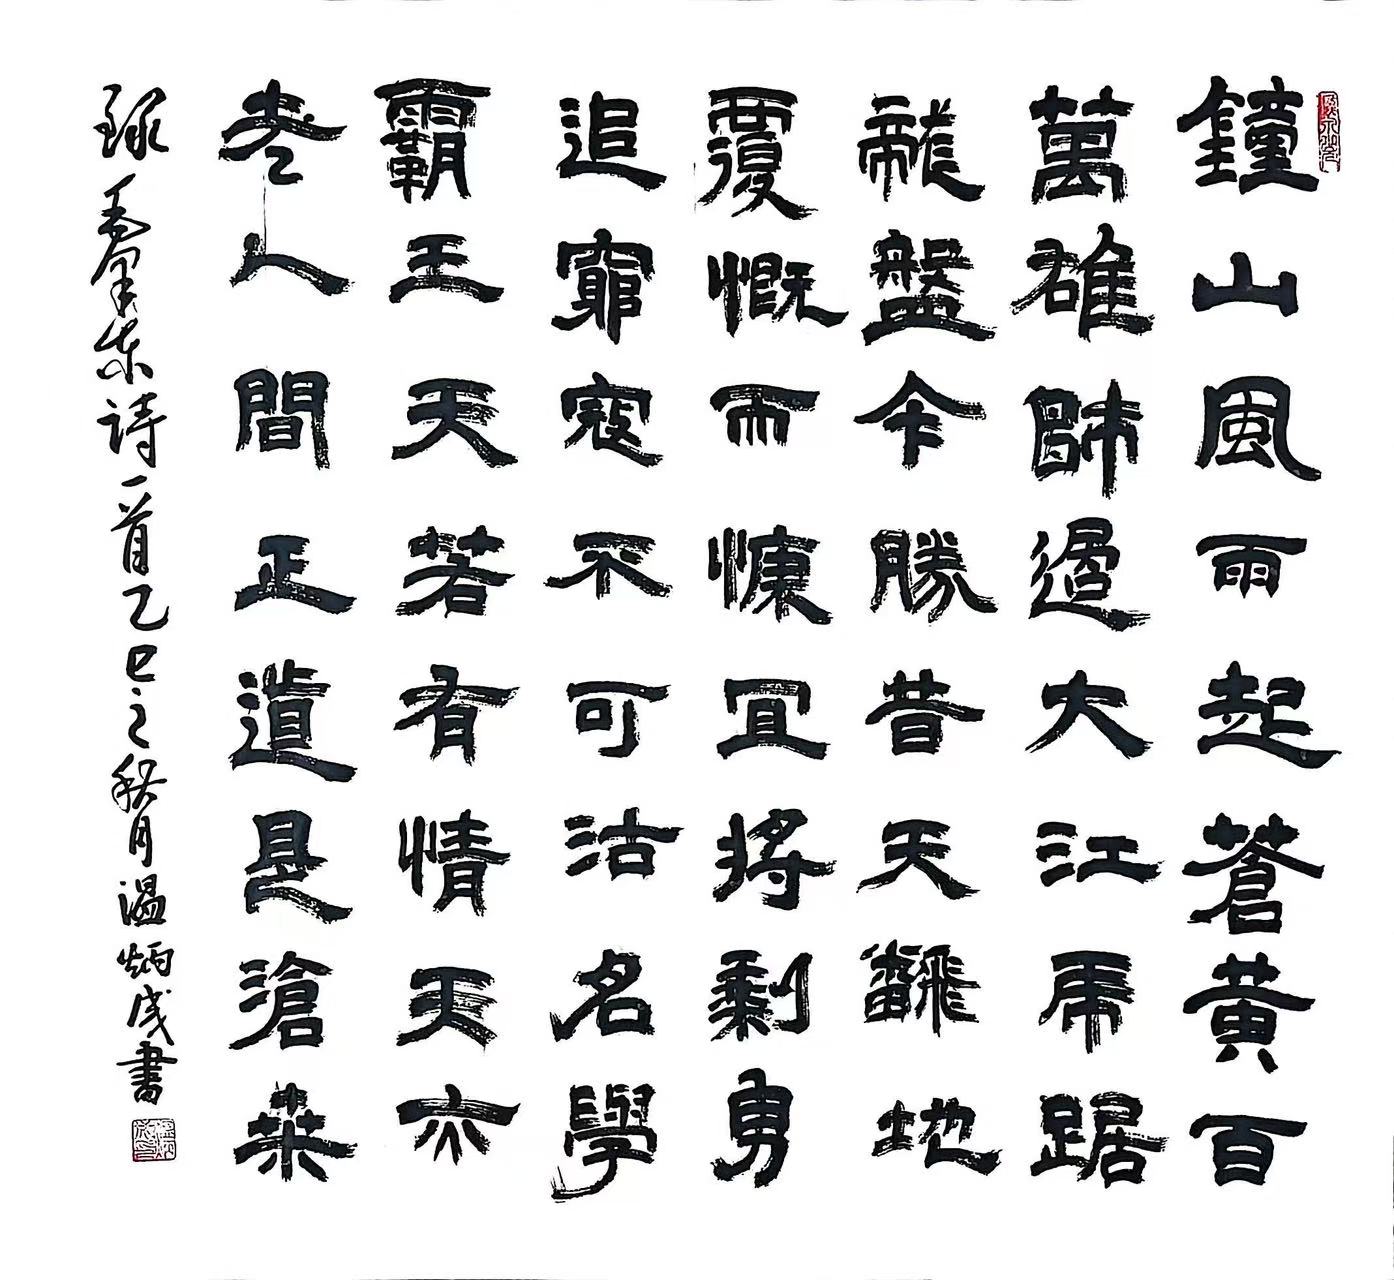 鐘山風雨起蒼黃百
萬雄師過大江虎踞
龍盤今勝昔天翻地
覆慨而慷宜將剩勇
追窮寇不可沽名學
霸王天若有情天亦
老人間正道是滄桑
錄毛澤東詩一首乙巳之秋月溫炳成書